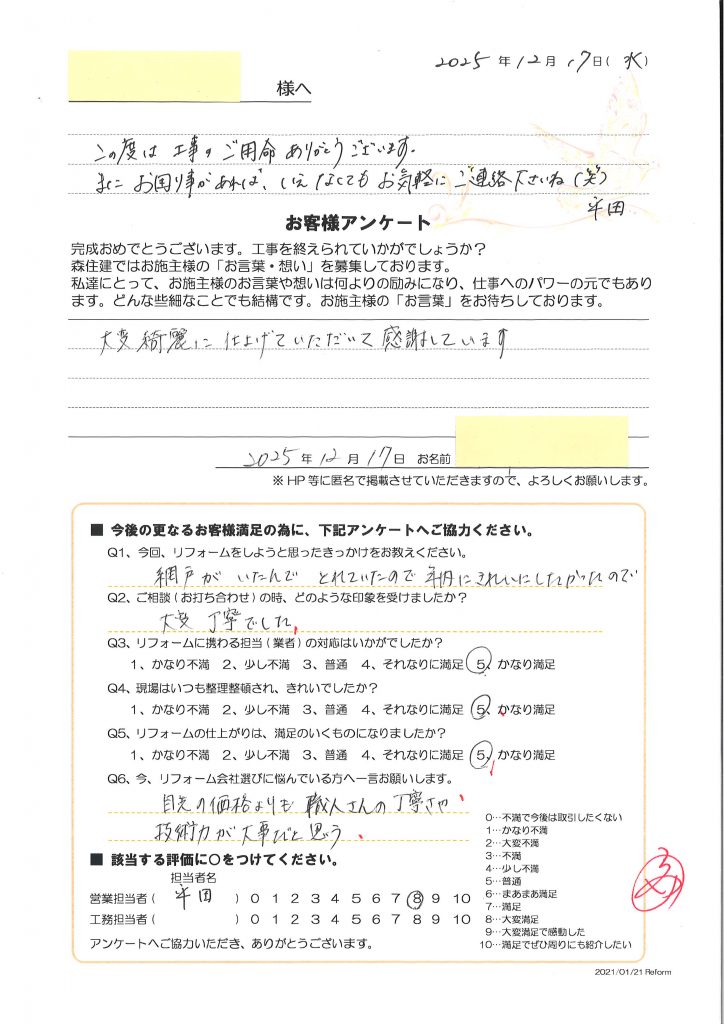 2025年12月17日(水)
様へ
この度は工事のご用命ありがとうございます。
またお困り事があれば、いえなくてもお気軽にご連絡下さいね(笑)
平田
お客様アンケート
完成おめでとうございます。工事を終えられていかがでしょうか?
森住建ではお施主様の「お言葉・想い」を募集しております。
私達にとって、お施主様のお言葉や想いは何よりの励みになり、仕事へのパワーの元でもあり
ます。どんな些細なことでも結構です。お施主様の「お言葉」をお待ちしております。
大変綺麗に仕上げていただいて感謝しています
2025年12月17日 お名前
※HP等に匿名で掲載させていただきますので、よろしくお願いします。
■ 今後の更なるお客様満足の為に、下記アンケートへご協力ください。
Q1、今回、リフォームをしようと思ったきっかけをお教えください。
網戸がいたんでとれていたので年内にきれいにしたかったので
Q2、ご相談(お打ち合わせ)の時、どのような印象を受けましたか?
大変丁寧でした
Q3、リフォームに携わる担当(業者)の対応はいかがでしたか?
1、かなり不満 2、少し不満 3、普通 4、それなりに満足 5、かなり満足
Q4、現場はいつも整理整頓され、きれいでしたか?
1、かなり不満 2、少し不満 3、普通 4、それなりに満足 5、かなり満足
Q5、リフォームの仕上がりは、満足のいくものになりましたか?
1、かなり不満 2、少し不満 3、普通 4、それなりに満足 5、かなり満足
Q6、今、リフォーム会社選びに悩んでいる方へ一言お願いします。
目先の価格よりも職人さんの丁寧さや
技術力が大事だと思う
■ 該当する評価に○をつけてください。
担当者名
営業担当者( 平田 )0 1 2 3 4 5 6 7 8 9 10
工務担当者( )0 1 2 3 4 5 6 7 8 9 10
アンケートへご協力いただき、ありがとうございます。
0…不満で今後は取引したくない
1…かなり不満
2…大変不満
3…不満
4…少し不満
5…普通
6…まあまあ満足
7…満足
8…大変満足
9…大変満足で感動した
10…満足でぜひ周りにも紹介したい
2021/01/21 Reform